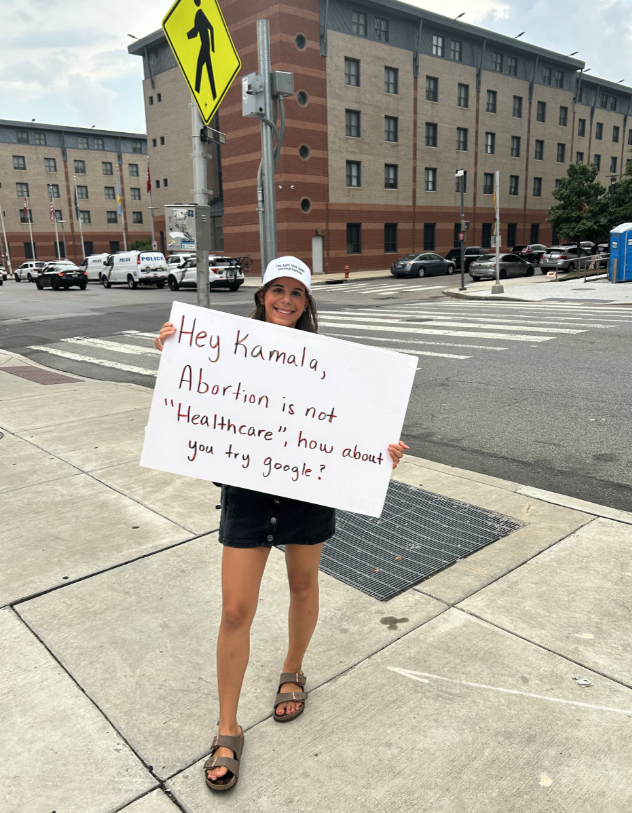 POLICE
Hey Kamala,
Abortion is not
"Healthcare", how about
you try google?